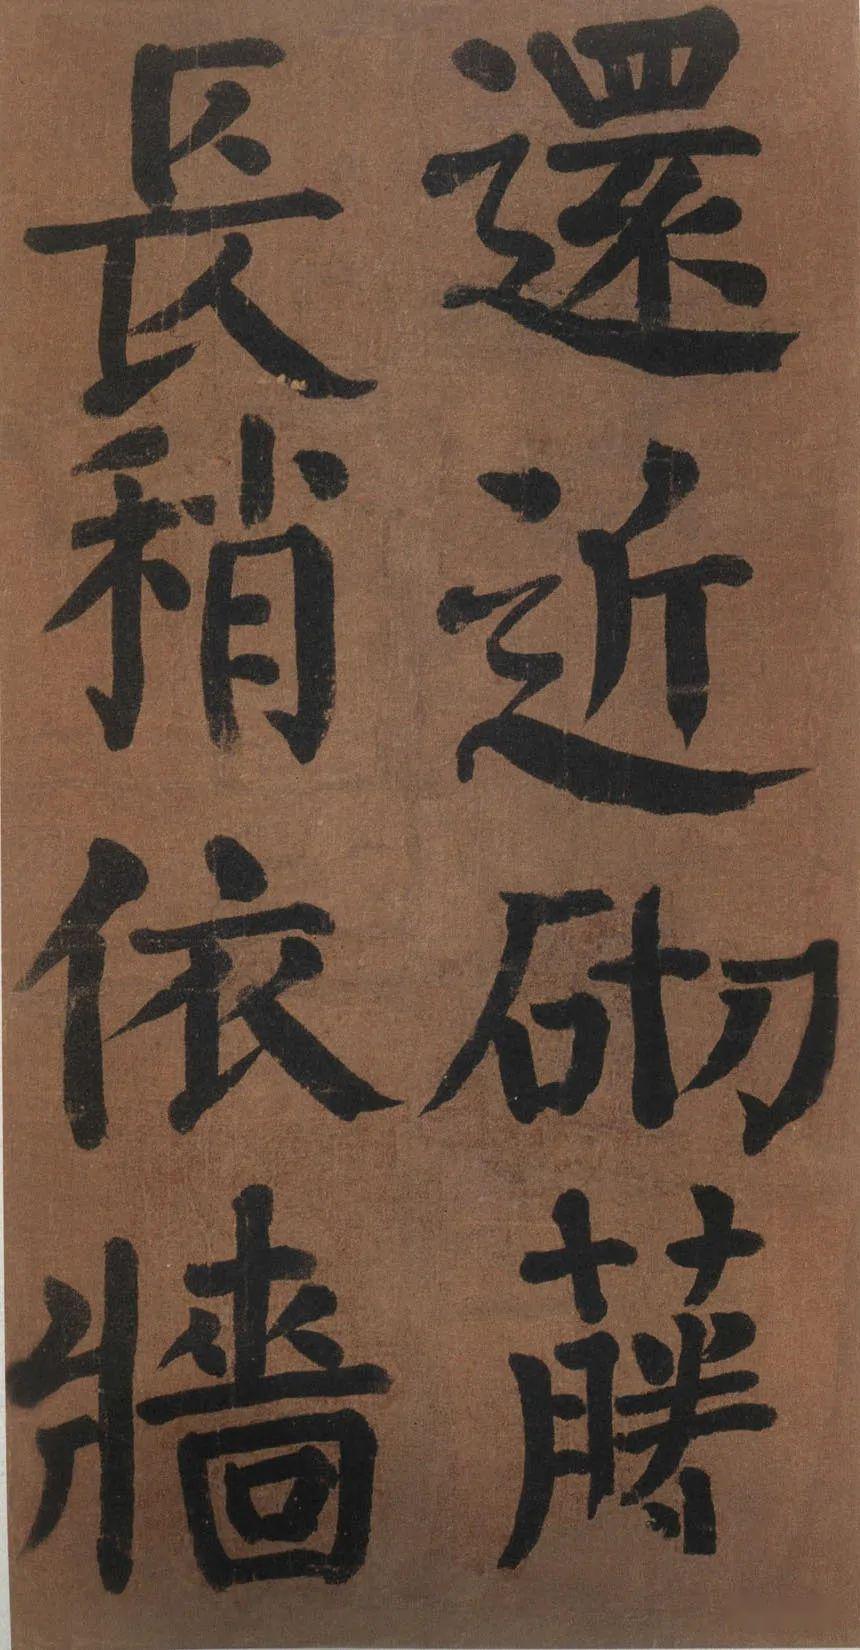 還近砌藤
長稍依牆